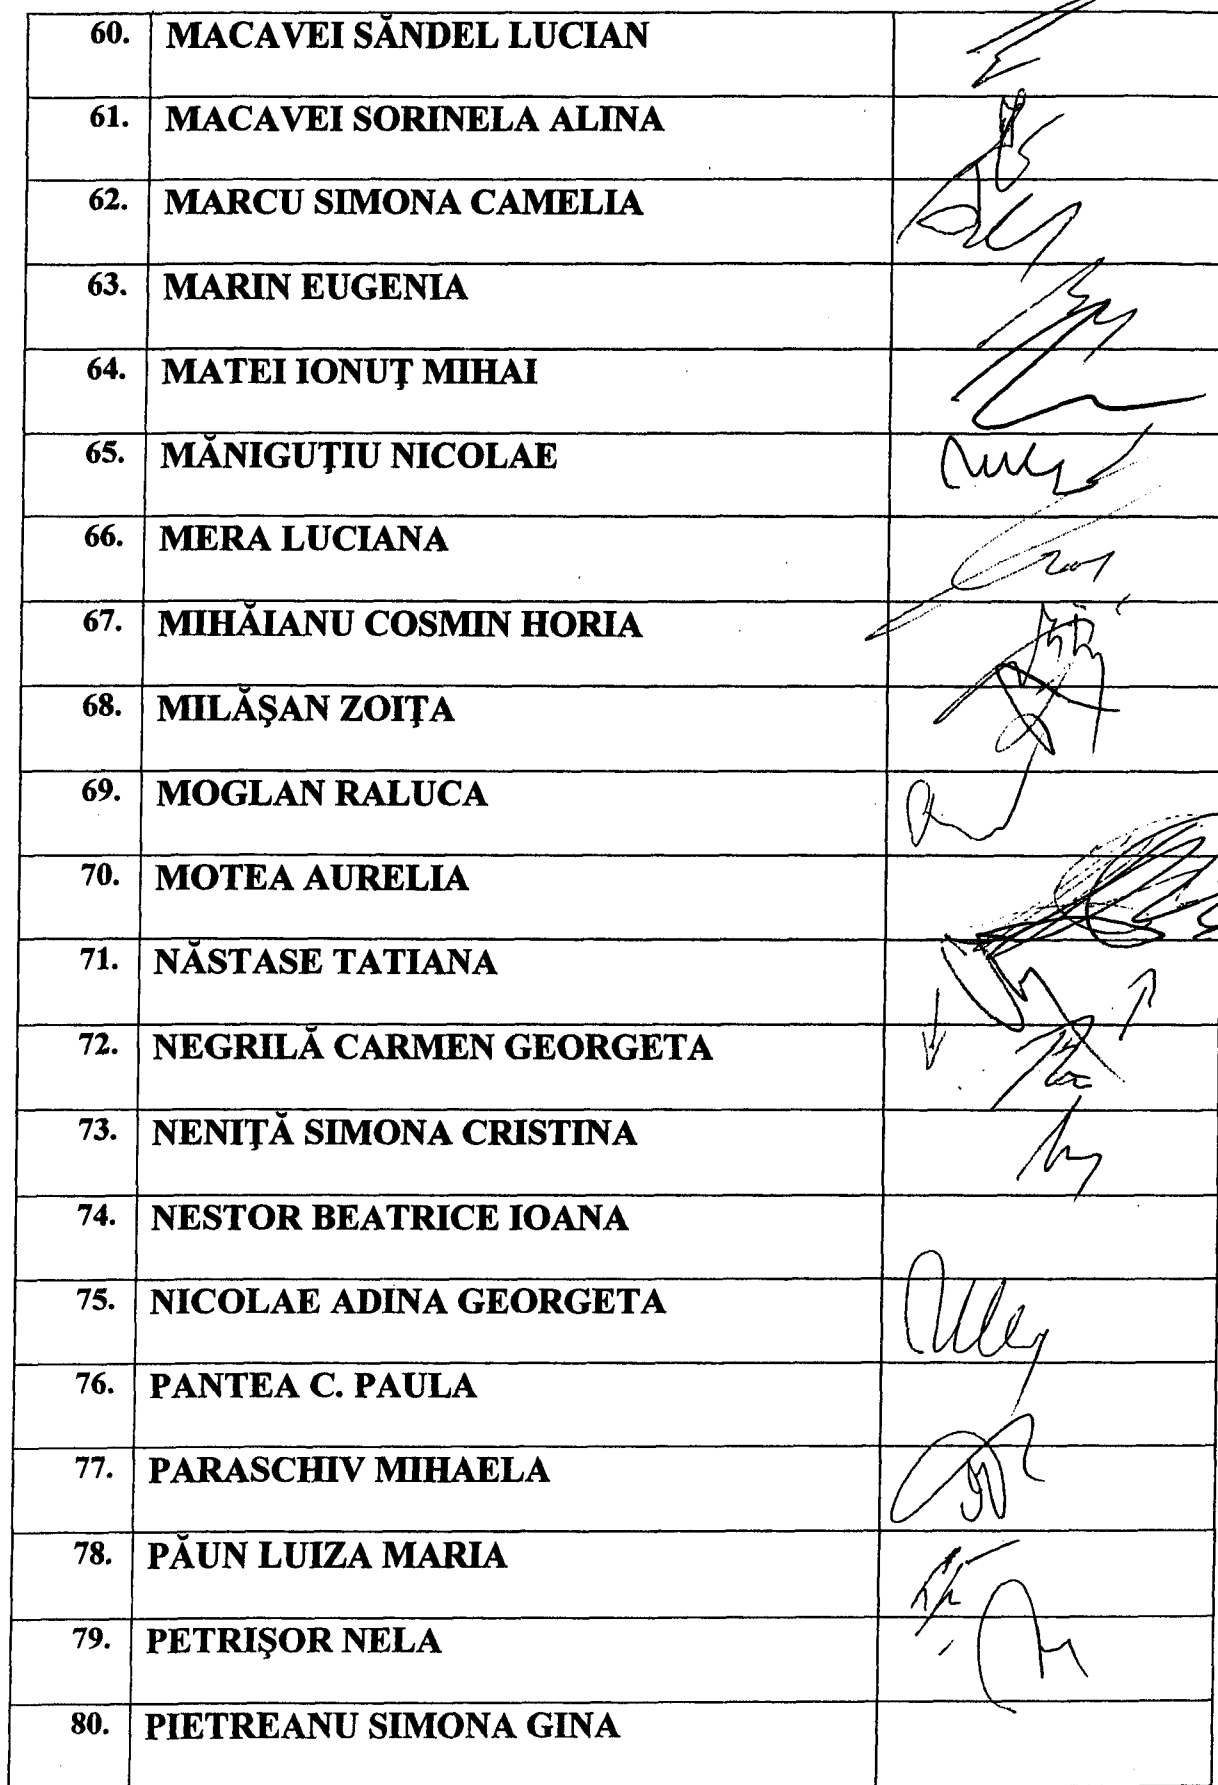 60. MACAVEI SĂNDEL LUCIAN
61. MACAVEI SORINELA ALINA
62. MARCU SIMONA CAMELIA
63. MARIN EUGENIA
64. MATEI IONUŢ MIHAI
65. MĂNIGUŢIU NICOLAE
66. MERA LUCIANA
67. MIHĂIANU COSMIN HORIA
68. MILĂŞAN ZOIŢA
69. MOGLAN RALUCA
70. MOTEA AURELIA
71. NĂSTASE TATIANA
72. NEGRILĂ CARMEN GEORGETA
73. NENIŢĂ SIMONA CRISTINA
74. NESTOR BEATRICE IOANA
75. NICOLAE ADINA GEORGETA
76. PANTEA C. PAULA
77. PARASCHIV MIHAELA
78. PĂUN LUIZA MARIA
79. PETRIŞOR NELA
80. PIETREANU SIMONA GINA